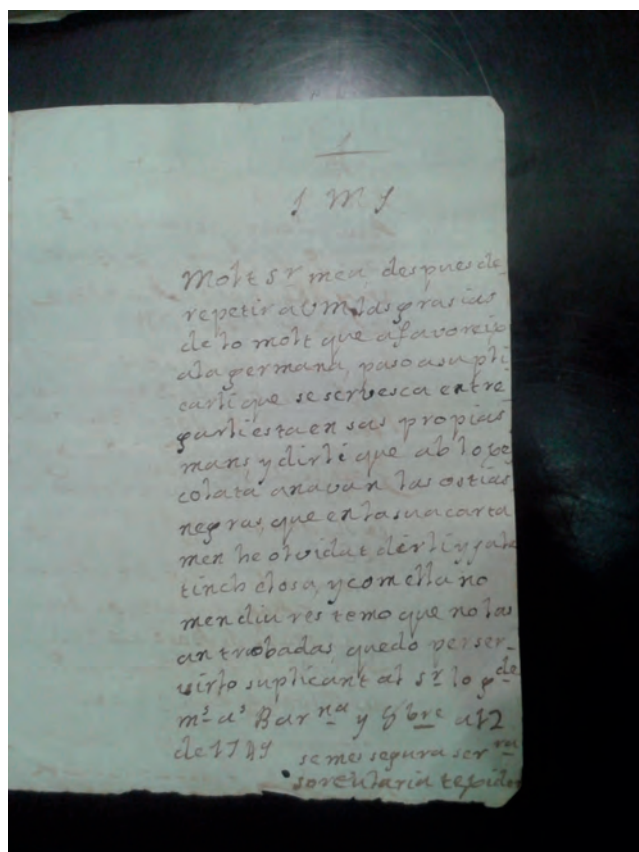 J M J
Molt Sr meu, despues de
repetir a V M las grasias
de lo molt que afavoreix
a la germana, paso a supli
carli que se servesca entre
garli esta en sas propias
mans y dirli que ab lo xo
colata anavan las ostias
negras, que en la sua carta
men he olvidat dirli y ja la
tinch closa, y com ella no
men diu res temo que no las
an trobadas quedo per ser_
virlo suplicant al Sr lo gde
ms as Barna y 8bre a 12
de 1789
se mes segura serra